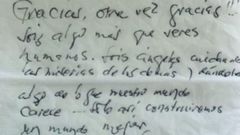 Gracias, otra vez gracias!!
sois algo más que seres
humanos. Sois ángeles cuidando
las miserias de los demás y dándoles
algo de lo que nuestro mundo
carece... Sólo así construiremos
un mundo mejor